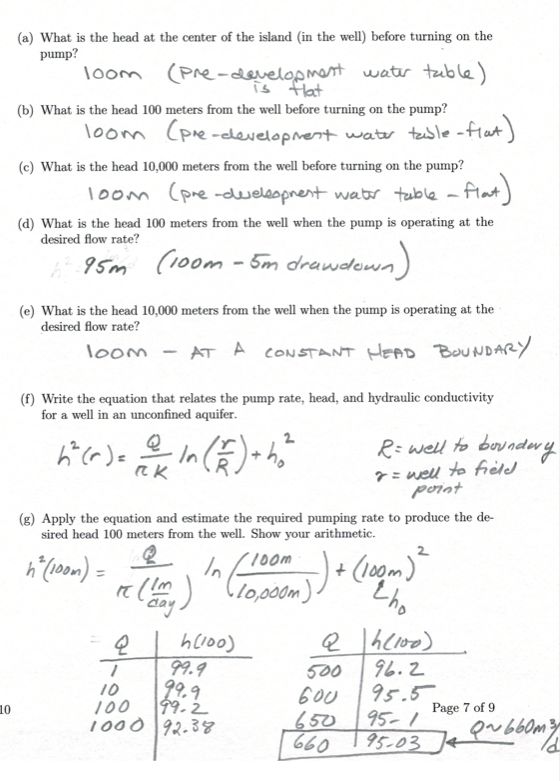 (a) What is the head at the center of the island (in the well) before turning on the
pump?
100m (pre-development water table)
is flat
(b) What is the head 100 meters from the well before turning on the pump?
100m (pre-development water table - flat)
(c) What is the head 10,000 meters from the well before turning on the pump?
100m (pre-development water table - flat)
(d) What is the head 100 meters from the well when the pump is operating at the
desired flow rate?
95m (100m - 5m drawdown)
(e) What is the head 10,000 meters from the well when the pump is operating at the
desired flow rate?
100m - AT A CONSTANT HEAD BOUNDARY
(f) Write the equation that relates the pump rate, head, and hydraulic conductivity
for a well in an unconfined aquifer.
h²(r) = Q/πK ln(r/R) + h₀²
R = well to boundary
r = well to field
point
(g) Apply the equation and estimate the required pumping rate to produce the de-
sired head 100 meters from the well. Show your arithmetic.
h²(100m) = Q/π(1m/day) ln(100m/10,000m) + (100m)²
h₀
Q h(100)
1 99.9
10 99.9
100 99.2
1000 92.38
Q h(100)
500 96.2
600 95.5
650 95-1
660 95-03
Q~660m³/d
10
Page 7 of 9